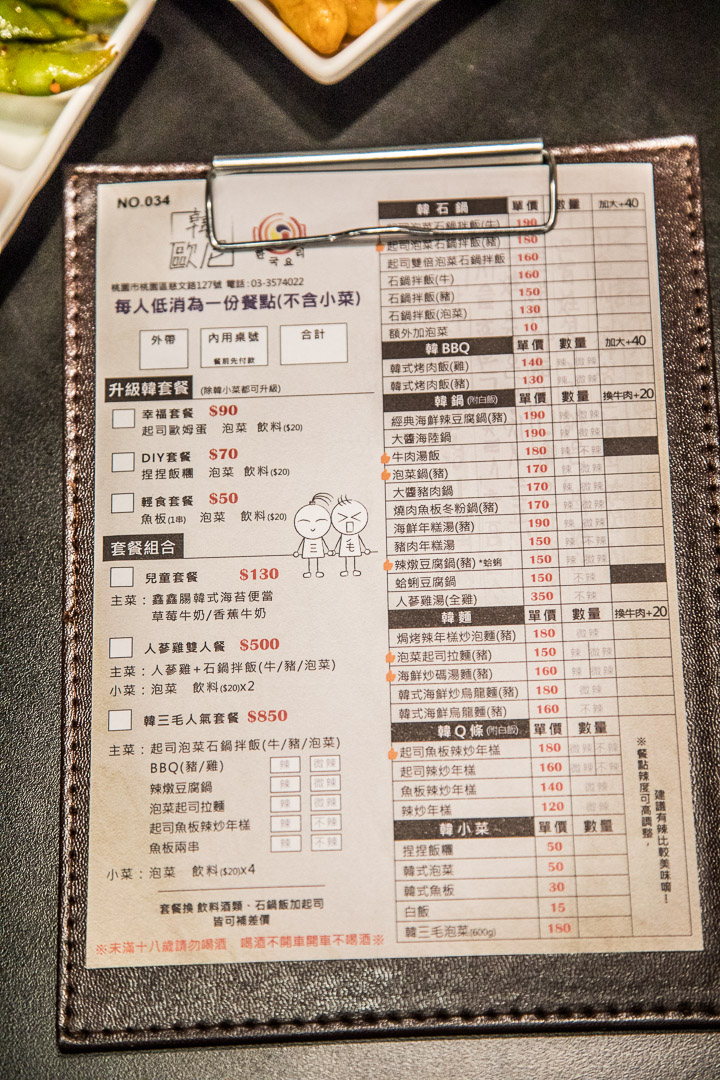 NO.034
韓
한국요리
桃園市桃園區慈文路127號 電話:03-3574022
每人低消為一份餐點(不含小菜)
外帶
內用桌號
餐前先付款
合計
升級韓套餐 (除韓小菜都可升級)
幸福套餐 $90
起司歐姆蛋 泡菜 飲料($20)
DIY套餐 $70
捏捏飯糰 泡菜 飲料($20)
輕食套餐 $50
魚板(1串) 泡菜 飲料($20)
三 毛
套餐組合
兒童套餐 $130
主菜:鑫鑫腸韓式海苔便當
草莓牛奶/香蕉牛奶
人蔘雞雙人餐 $500
主菜:人蔘雞+石鍋拌飯(牛/豬/泡菜)
小菜:泡菜 飲料($20)x2
韓三毛人氣套餐 $850
主菜:起司泡菜石鍋拌飯(牛/豬/泡菜)
BBQ(豬/雞) 辣 微辣
辣燉豆腐鍋 辣 微辣
泡菜起司拉麵 辣 微辣
起司魚板辣炒年糕 辣 微辣
魚板兩串 辣 不辣
小菜:泡菜 飲料($20)x4
套餐換 飲料酒類、石鍋飯加起司
皆可補差價
※未滿十八歲請勿喝酒 喝酒不開車開車不喝酒※
韓石鍋 單價 數量 加大+40
起司泡菜石鍋拌飯(牛) 190
起司泡菜石鍋拌飯(豬) 180
起司雙倍泡菜石鍋拌飯 160
石鍋拌飯(牛) 160
石鍋拌飯(豬) 150
石鍋拌飯(泡菜) 130
額外加泡菜 10
韓BBQ 單價 數量 加大+40
韓式烤肉飯(雞) 140 辣 微辣
韓式烤肉飯(豬) 130 辣 微辣
韓鍋(附白飯) 單價 數量 換牛肉+20
經典海鮮辣豆腐鍋(豬) 190 辣 微辣
大醬海陸鍋 190 辣 微辣
牛肉湯飯 180 辣 不辣
泡菜鍋(豬) 170 辣 微辣
大醬豬肉鍋 170 辣 微辣
燒肉魚板冬粉鍋(豬) 170 辣 微辣
海鮮年糕湯(豬) 190 辣 微辣
豬肉年糕湯 150 辣 不辣
辣燉豆腐鍋(豬) *蛤蜊 150 辣 微辣
蛤蜊豆腐鍋 150 不辣
人蔘雞湯(全雞) 350 不辣
韓麵 單價 數量 換牛肉+20
焗烤辣年糕炒泡麵(豬) 180 微辣
泡菜起司拉麵(豬) 150 辣 微辣
海鮮炒碼湯麵(豬) 160 辣 微辣
韓式海鮮炒烏龍麵(豬) 180 微辣
韓式海鮮烏龍麵(豬) 160 不辣
韓Q條(附白飯) 單價 數量
起司魚板辣炒年糕 180 微辣 不辣
起司辣炒年糕 160 微辣 不辣
魚板辣炒年糕 140 微辣
辣炒年糕 120 微辣
韓小菜 單價 數量
捏捏飯糰 50
韓式泡菜 50
韓式魚板 30
白飯 15
韓三毛泡菜(600g) 180
※餐點辣度可高調整,
建議有辣比較美味唷!